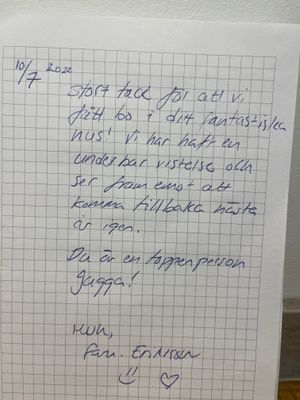 10/7 2022
Stort tack för att vi
fått bo i ditt fantastiska
hus! Vi har haft en
underbar vistelse och
ser fram emot att
komma tillbaka nästa
år igen.
Du är en toppenperson
Jagga!
Fam. Eriksson